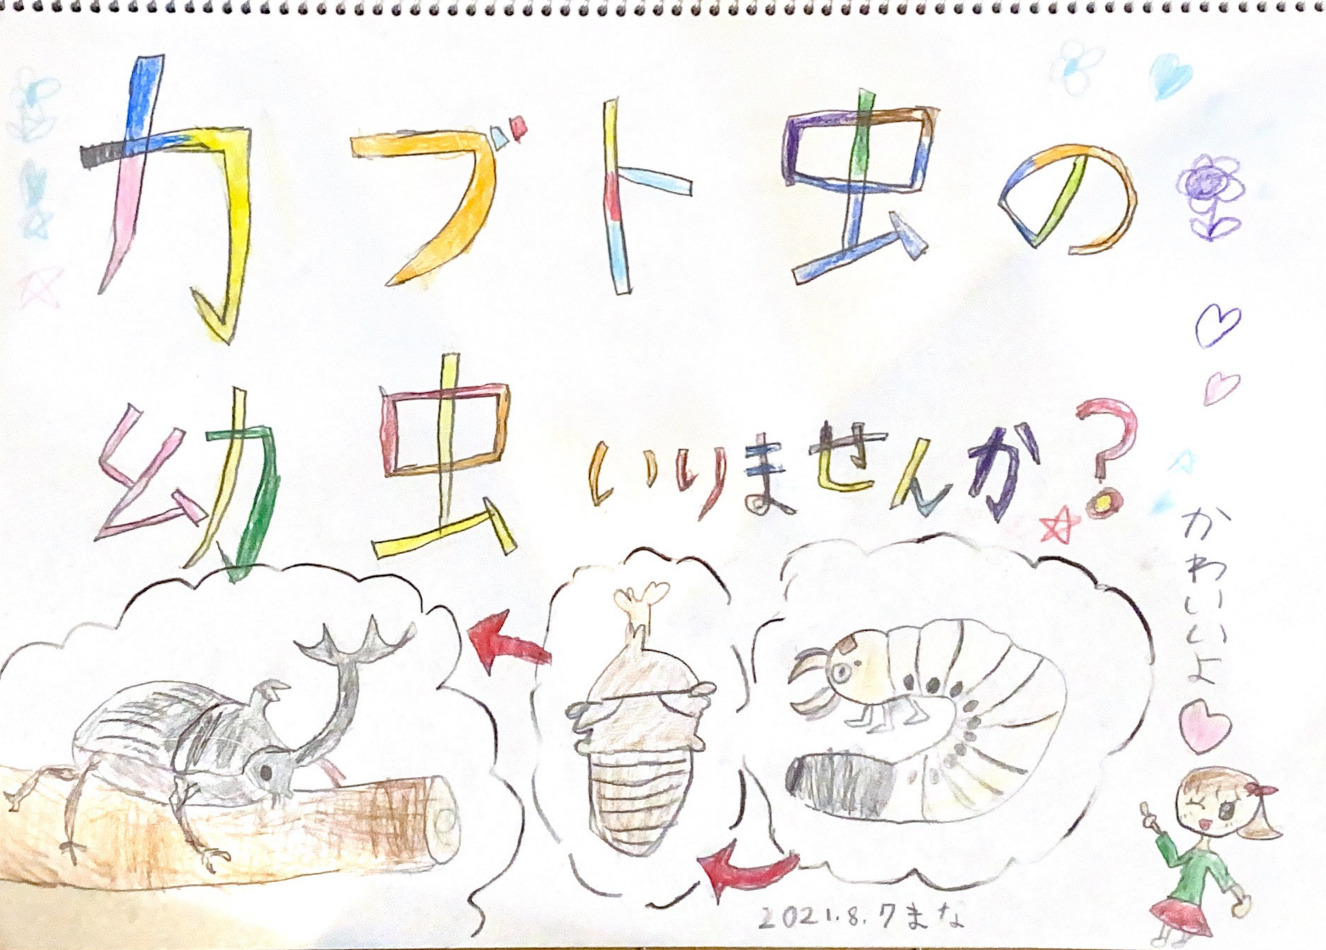 カブト虫の
幼虫いりませんか?
かわいいよ
2021.8.7まな